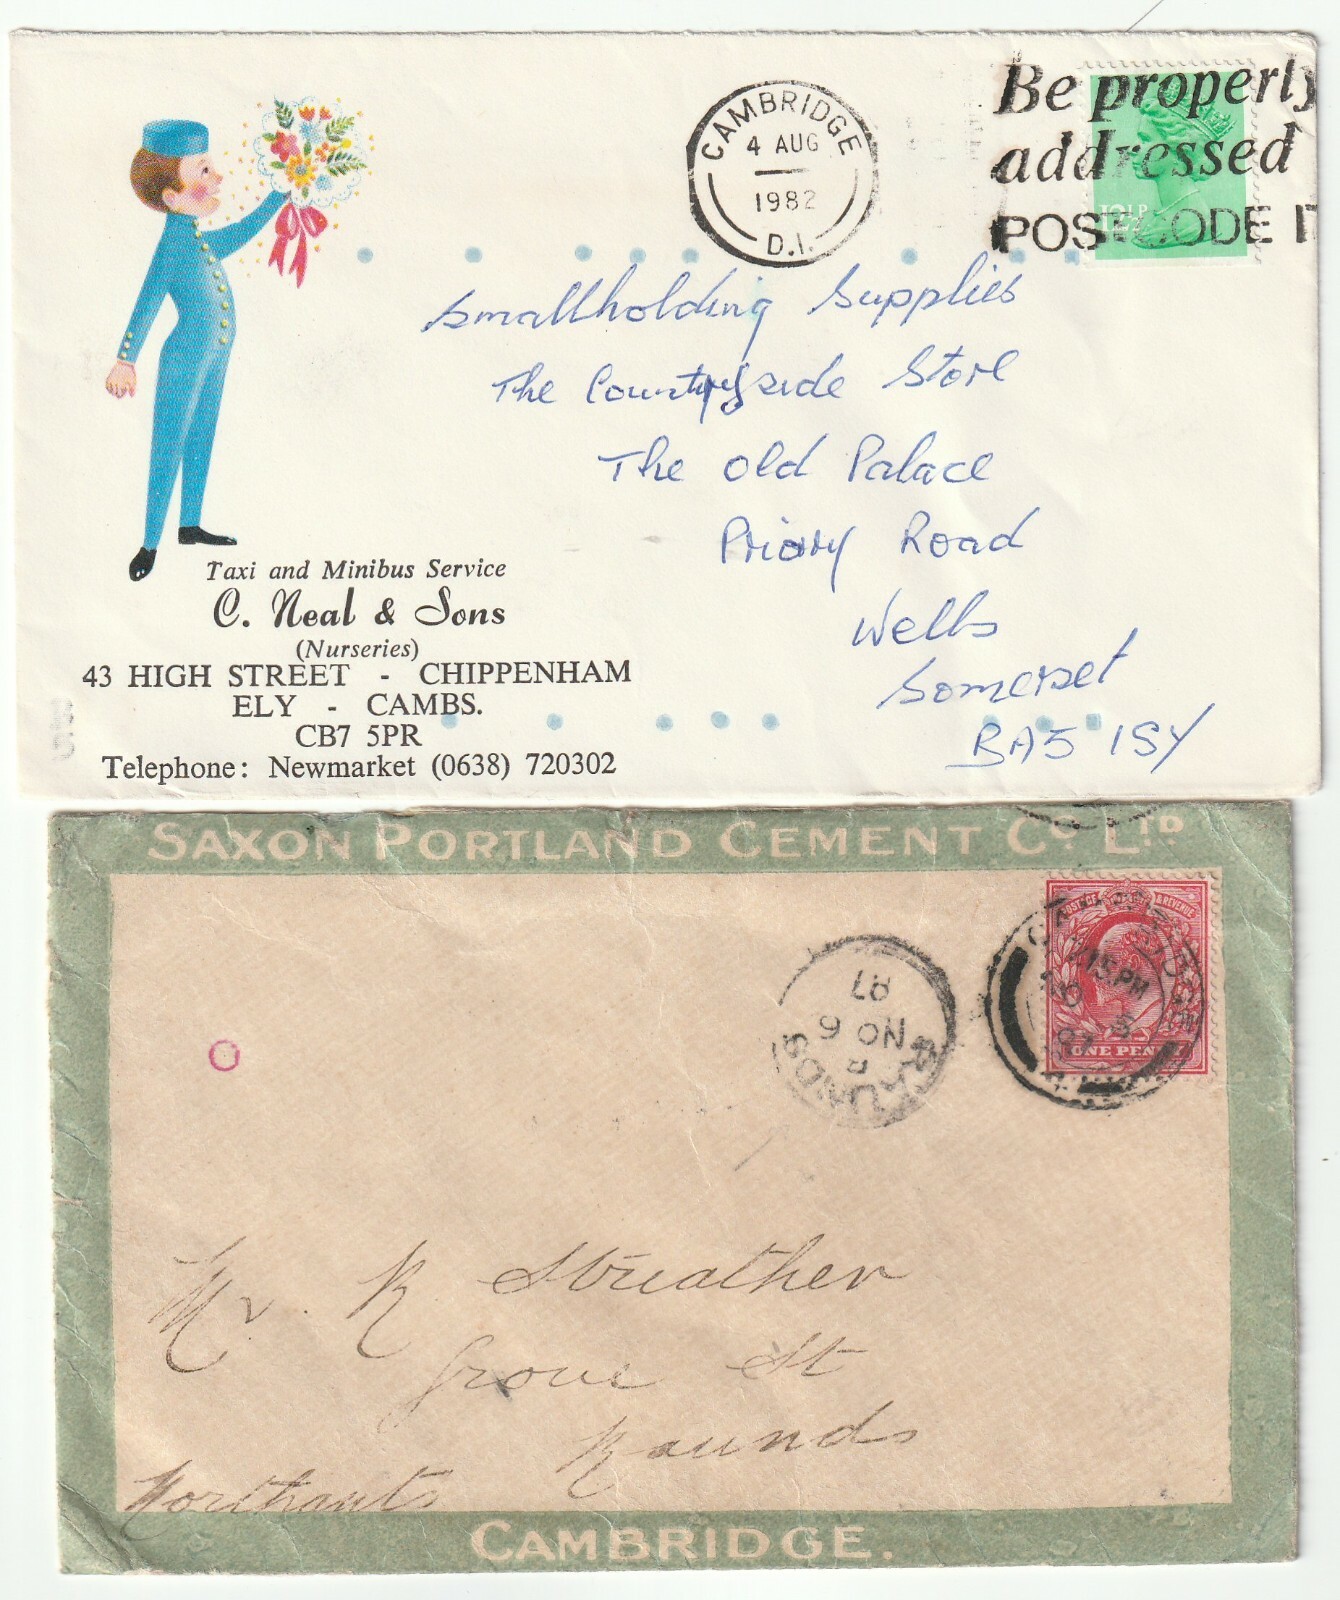 CAMBRIDGE
4 AUG
1982
D.I.
Be properly
addressed
POSTCODE IT
Smallholding Supplies
The Countryside Store
The Old Palace
Priory Road
Wells
Somerset
BA5 1SY
Taxi and Minibus Service
C. Neal & Sons
(Nurseries)
43 HIGH STREET - CHIPPENHAM
ELY - CAMBS.
CB7 5PR
Telephone: Newmarket (0638) 720302
SAXON PORTLAND CEMENT Co. LTD
POSTAGE & REVENUE
ONE PENNY
CAMBRIDGE
15 PM
RAUNDS
NO 6
07
Mr. R Streather
Grove St
Raunds
Northants
CAMBRIDGE.